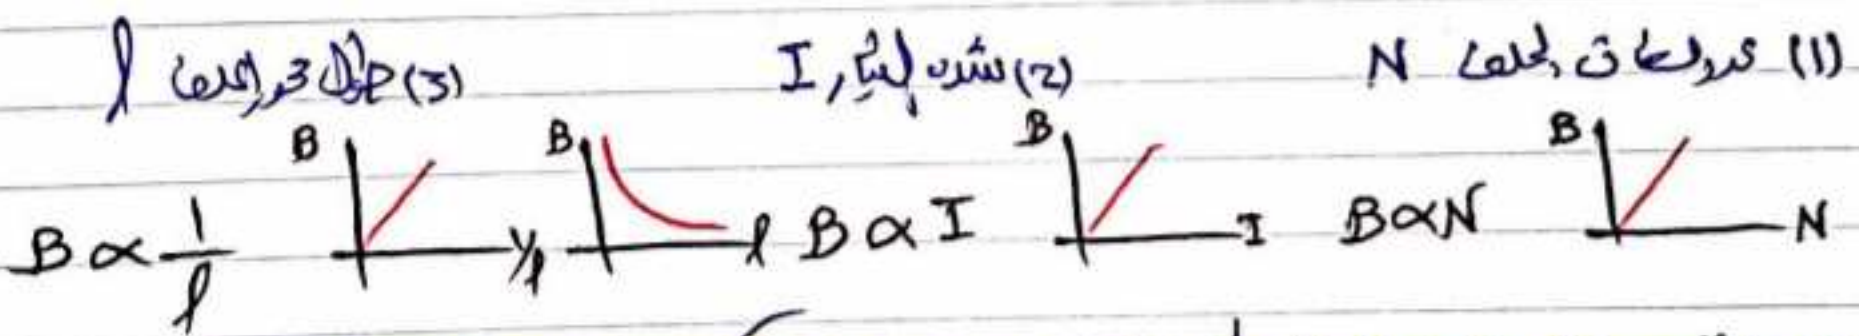 (1) عدد لفات الملف N (2) شدة التيار I (3) طول محور الملف l
B N B I B l B 1/l
B ∝ N B ∝ I B ∝ 1/l